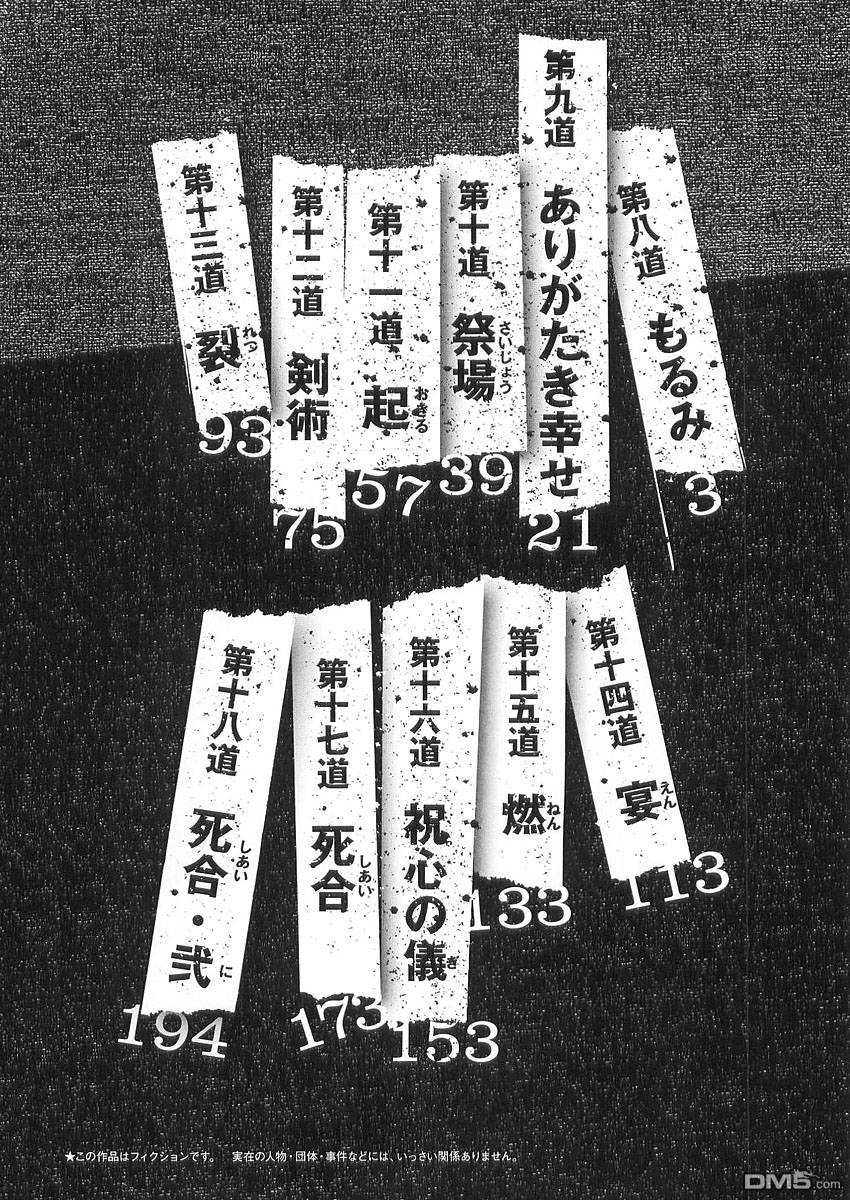 第八道 もるみ
3
第九道 ありがたき幸せ
21
第十道 祭場
さいしょう
39
第十一道 起
おきる
57
第十二道 剣術
75
第十三道 裂
れつ
93
第十四道 宴
えん
113
第十五道 燃
ねん
133
第十六道 祝心の儀
ぎ
153
第十七道 死合
しあい
173
第十八道 死合・弐
しあい に
194
★この作品はフィクションです。 実在の人物・団体・事件などには、いっさい関係ありません。
DM5.com